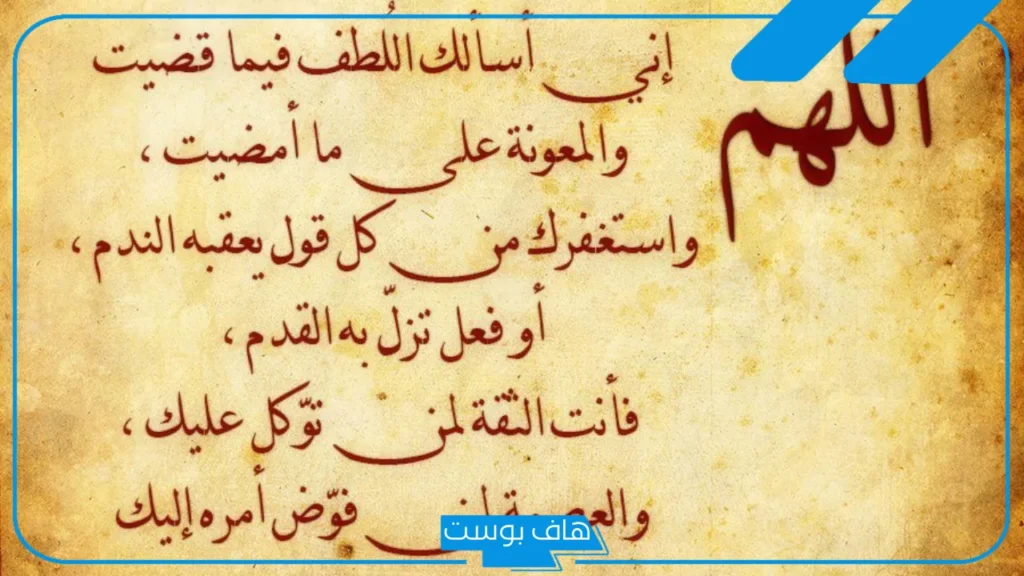 اللهم
إني أسألك اللُطف فيما قضيت
والمعونة على ما أمضيت ،
واستغفرك من كل قول يعقبه الندم ،
أو فعل تزلّ به القدم ،
فأنت الثقة لمن توّكل عليك ،
والعصمة لمن فوّض أمره إليك
هاف بوست